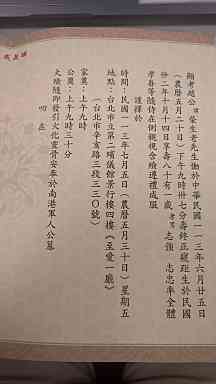 顯考趙公諱榮生老先生慟於中華民國一一三年六月廿五日
（農曆五月二十日）下午九時卅七分壽終正寢距生於民國
卅二年十月十四日享壽八十有一歲孝男志強 志忠率全體
孝眷等隨侍在側親視含殮遵禮成服
謹擇於
時間：民國一一三年七月五日（農曆五月三十日）星期五
地點：台北市立第二殯儀館景行樓四樓（至愛一廳）
（台北市辛亥路三段三三〇號）
家奠：上午九時
公奠：上午九時三十分
大殮隨即發引火化靈骨安奉於南港軍人公墓
叨 在